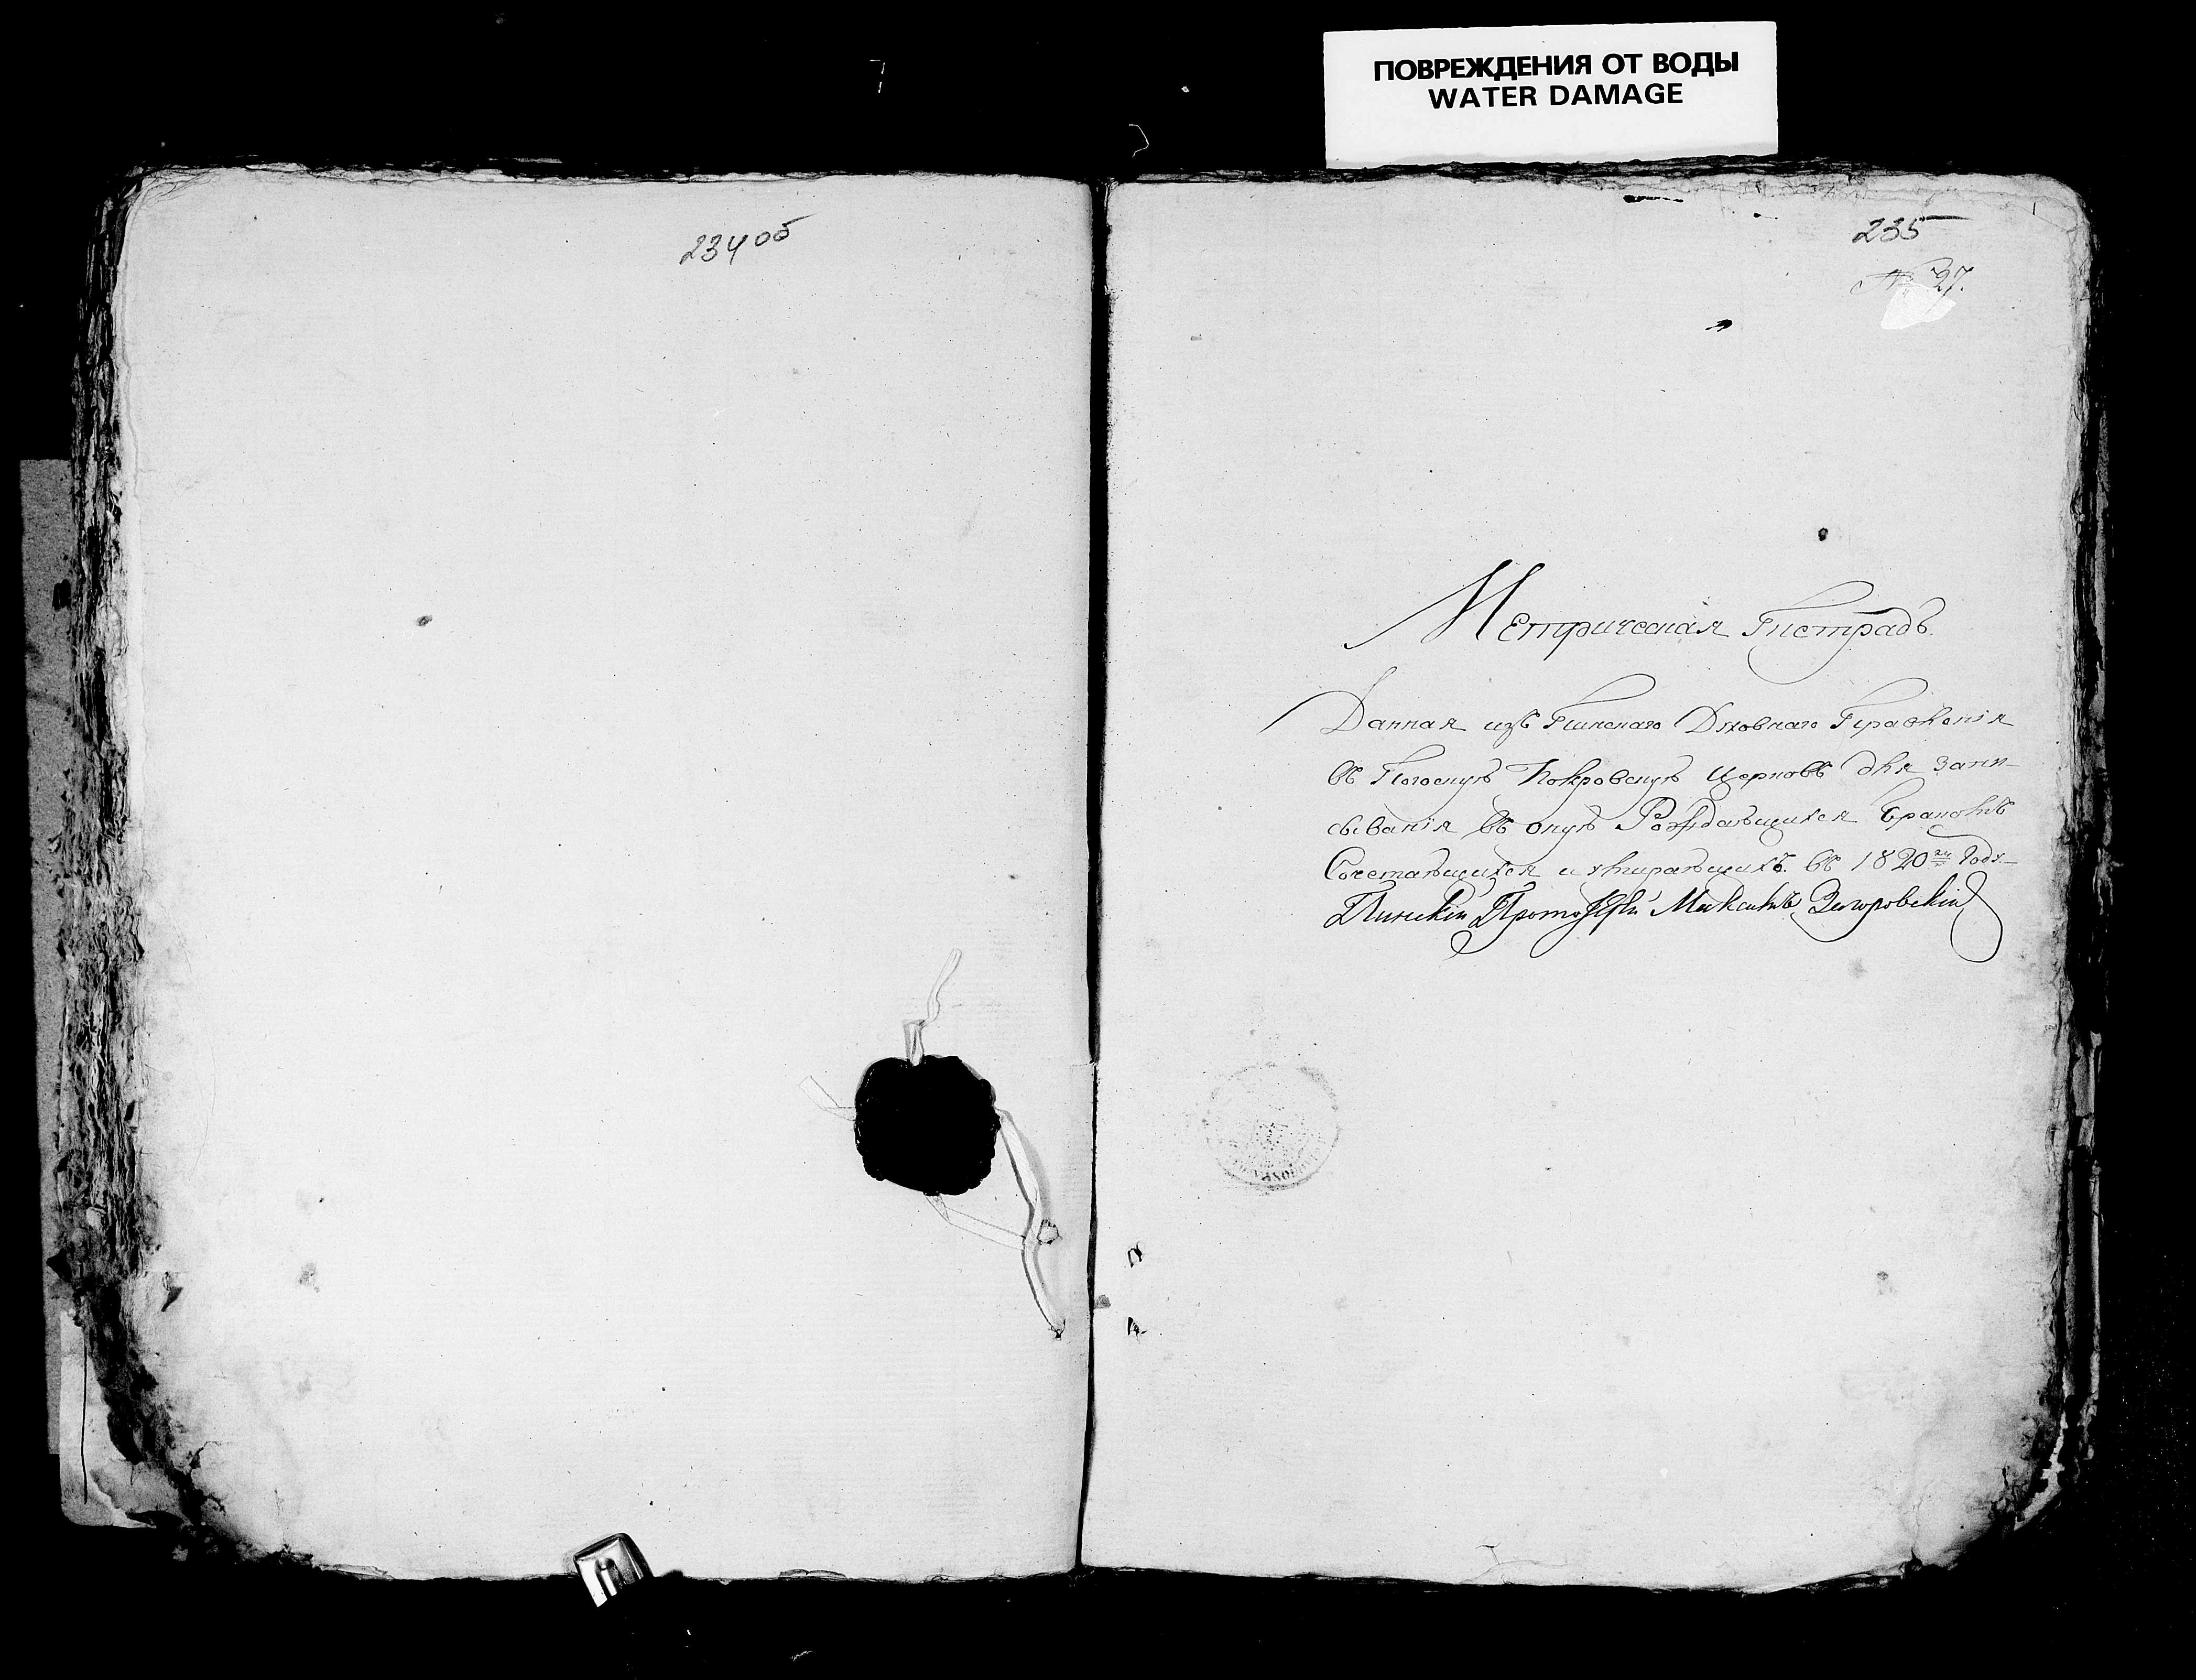 ПОВРЕЖДЕНИЯ ОТ ВОДЫ
WATER DAMAGE
234об
235
№ 37.
Метрическая Тистрадъ.
Данная изъ Пинскаго Духовнаго Правленія
въ Погоскую Покровскую Церковъ для запи-
сыванія въ оную Рождавщихся Бракомъ
Сочетавщихся и умиравщихъ. въ 1820м Году.
Пинскій Протоіерей Максимъ